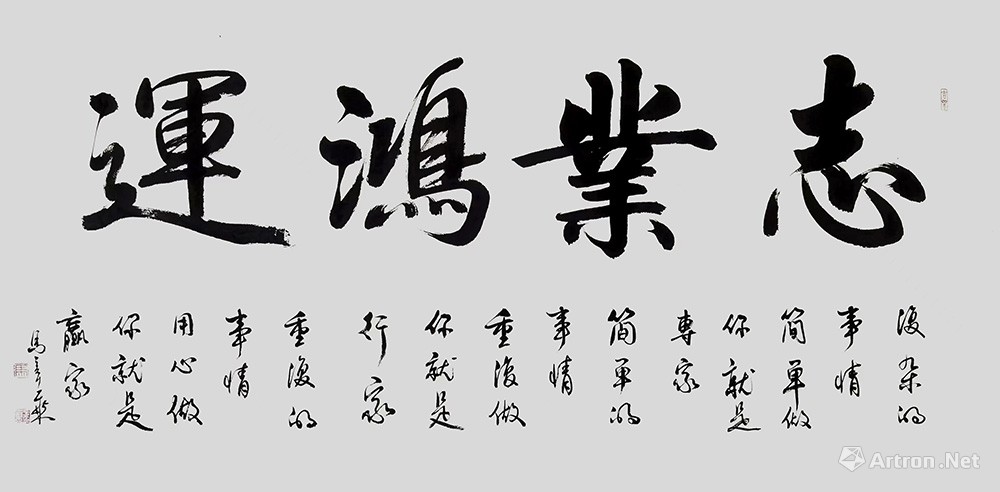 志業鴻運
復杂的
事情
简單做
你就是
專家
简單的
事情
重復做
你就是
行家
重復的
事情
用心做
你就是
贏家
馬
Artron.Net